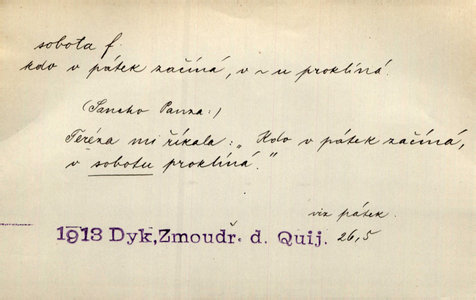 sobota f.
kdo v pátek začíná, v ~u proklíná.
(Sancho Panza:)
Teréza mi říkala: „Kdo v pátek začíná,
v sobotu proklíná."
viz pátek.
1913 Dyk, Zmoudř. d. Quij. 26,5